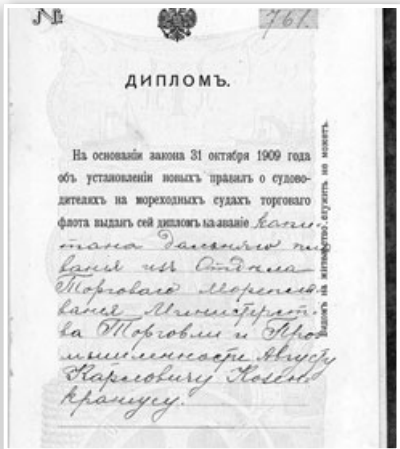 № 761.
ДИПЛОМЪ.
На основаніи закона 31 октября 1909 года
объ установленіи новыхъ правилъ о судово-
дителяхъ на мореходныхъ судахъ торговаго
флота выданъ сей дипломъ на званіе капи-
тана дальняго пла
ванія изъ Отдѣла
Торговаго Морепла
ванія Министерст-
ва Торговли и Про
мышленности Августу
Карловичу Козен
кранцусу.
Видомъ на жительство служить не можетъ.